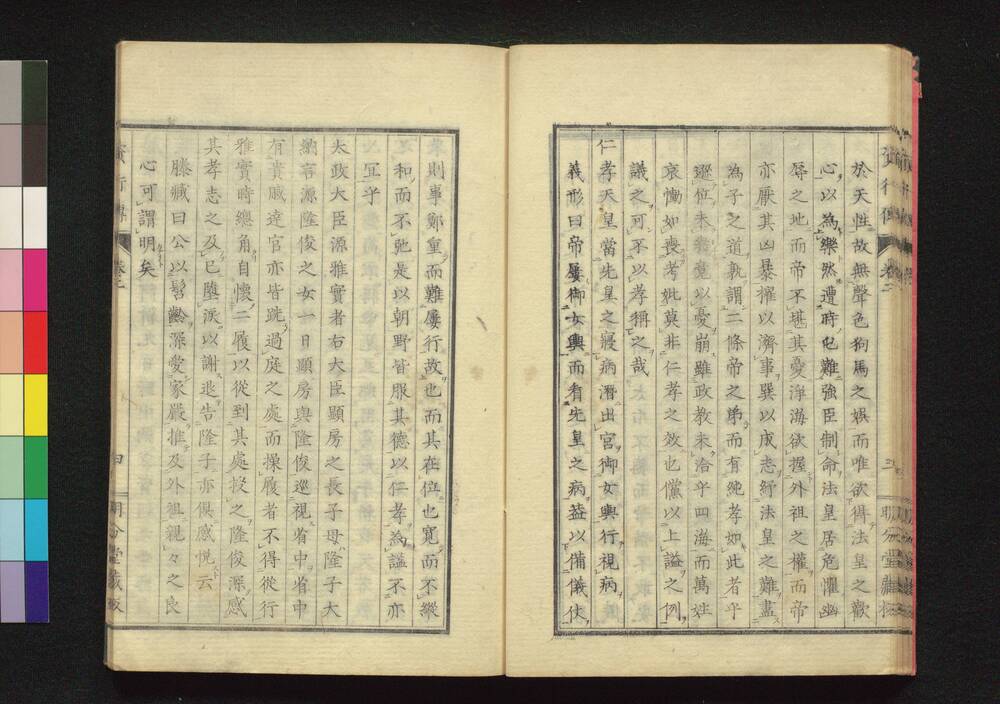 於天性故無聲色狗馬之娯而唯欲得法皇之歡
心以為樂然遭時屯難強臣制命法皇居危懼幽
辱之地而帝不堪其憂淨海欲握外祖之權而帝
亦厭其凶暴擢以濟事巽以成志紓法皇之難盡
為子之道孰謂二條帝之弟而有純孝如此者乎
遜位未幾憂以憂崩雖政教未洽乎四海而萬姓
哀慟如喪考妣莫非仁孝之效也儻以上謚之例
議之可不以孝稱之哉
仁孝天皇當先皇之寢病潛出宮御女輿行視病
義形曰帝屢御女輿而看先皇之病葢以備儀仗
則事鄭重而難屢行故也而其在位也寛而不縱
和而不弛是以朝野皆服其德以仁孝為謚不亦
宜乎
太政大臣源雅實者右大臣顯房之長子母隆子大
納言源隆俊之女一日顯房與隆俊巡視省中省中
有貴戚達官亦皆跣過庭之處而操履者不得從行
雅實時總角自懷二履以從到其處投之隆俊深感
其孝志之及已墮涙以謝退告隆子亦倶感悦云
滕臧曰公以髫齡深愛家嚴推及外祖親々之良
心可謂明矣
卷之
四
明分堂藏板